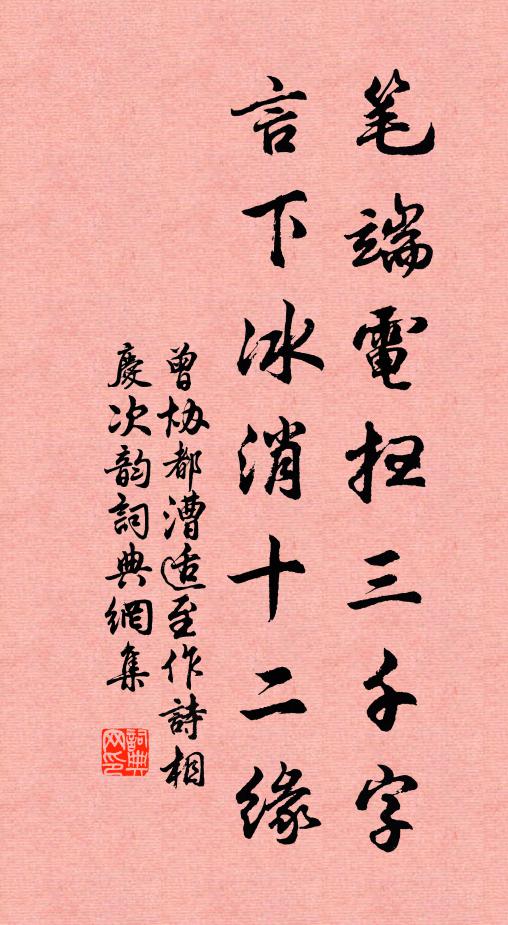 笔端電扫三千字
言下冰消十二缘
曾协都漕适至作詩相
慶次韵詞典網集
詞典网印